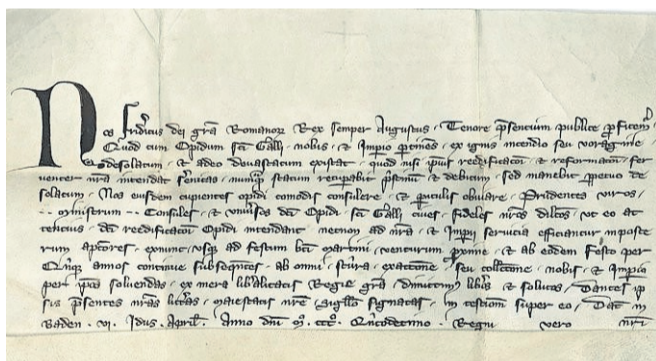 Nos Fridicus dei gra Romanorꝝ Rex semper Augustus · Tenore psencium publice pfitemr
Quod cum Opidum sci Galli · nobis · et Impio ptinens · ex ignis incendio seu voragine
desolatum · et adeo devastatum existat · quod nisi ipius reedificacoi et reformacoi fer
venter nra intendat serenitas · numqᷓ statum recupabit pstinum · et debitum · sed manebit ppetuo de
solatum · Nos eiusdem cupientes opidi comodis consulere · et piculis obviare · Prudentes viros
·· ministrum ·· Consules · et universos dci Opidi sci Galli cives · fideles nros dilcos · ut eo at
tencius · dci reedificacoi Opidi intendant · necnon ad nra · et Impii servicia efficiantur imposte
rum apciores · exnunc usqꝫ ad festum bti martini · venturum pxime · et ab eodem festo per
Qinqꝫ annos continue subsequentes · ab omni · stura · exaccione · seu collcione · nobis · et Impio
per ipos solvendas · ex mera libalitatis Regie gra · dimittimus libos · et solutos · Dantes ip
sis psentes nras litras · maiestatis nre · sigillo signatas · in testiom super eo · Dat in
Baden · vi · Idus · April · Anno dni · mᵒ · cccᵒ · Qintodecimo · Regni vero nri